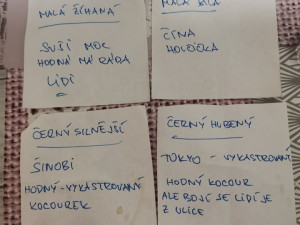 MALÁ ŽÍHANÁ
SUŠI MOC
HODNÁ MÁ RÁDA
LIDI
MALÁ BÍLÁ
ČÍNA
HOLČIČKA
ČERNÝ SILNĚJŠÍ
ŠINOBI
HODNÝ - VYKASTROVANÝ
KOCOUREK
ČERNÝ HUBENÝ
TOKYO - VYKASTROVANÝ
HODNÝ KOCOUR
ALE BOJÍ SE LIDÍ JE
Z ULICE